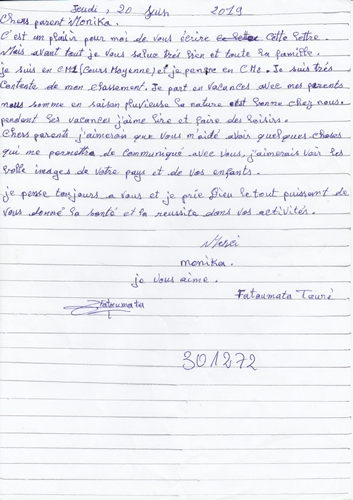 Jeudi, 20 Juin 2019
Chers parent Monika.
C'est un plaisir pour moi de vous écrire cette lettre.
Mais avant tout je vous salue très bien et toute la famille.
je suis en CM1 (Cours Moyenne) et je pense en CM2. Je suis très
contente de mon classement. Je part en vacances avec mes parents
nous somme en saison pluvieuse la nature est bonne chez nous.
pendent les vacances j'aime lire et faire des loisirs.
Chers parents j'aimerais que vous m'aidé avoir quelques choses
qui me permettra de communiqué avec vous j'aimerais voir les
belle images de votre pays et de vos enfants.
je pense toujours a vous et je prie Dieu le tout puissant de
vous donné la santé et la reussite dans vos activités.
Merci
monika.
je vous aime.
Fatoumata
Fatoumata Touré
301272